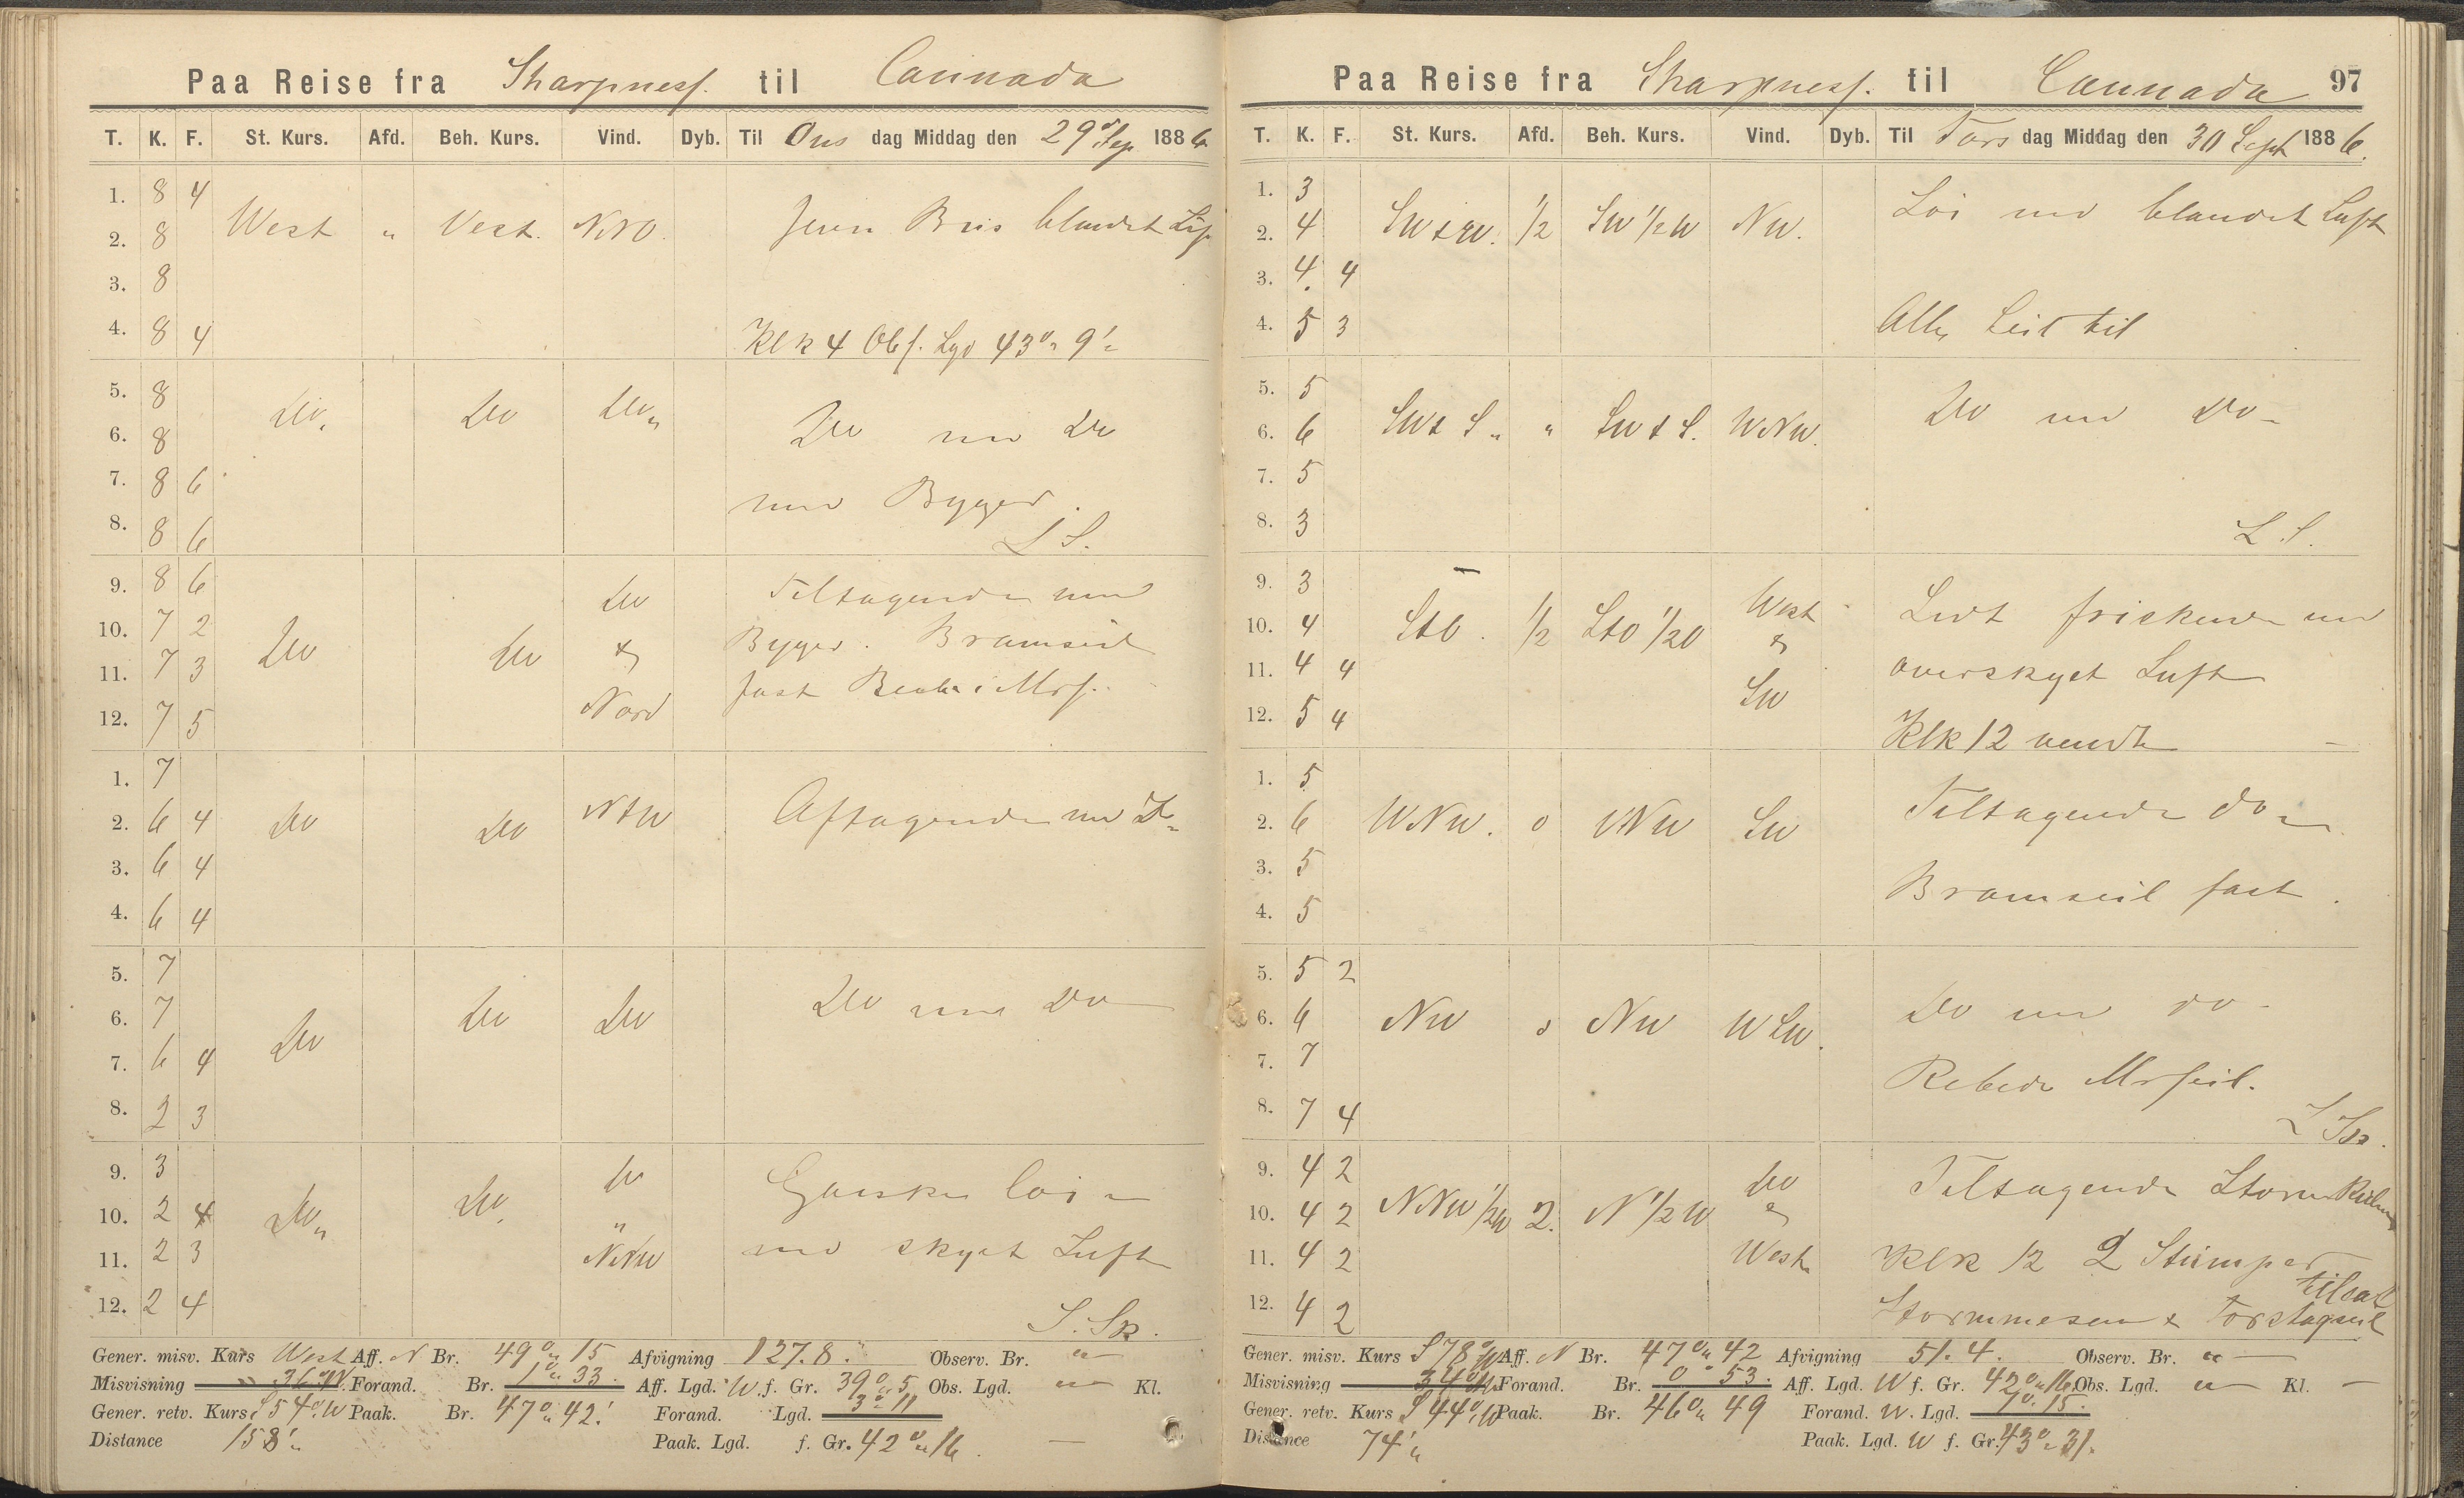 Paa Reise fra Sharpness. til Cannada
T. K. F. St. Kurs. Afd. Beh. Kurs. Vind. Dyb. Til Ons dag Middag den 29de Sep 1886
1. 8 4
2. 8 West " Vest. NNO. Jevn Bris blandet Luft
3. 8
4. 8 4 Klk 4 Obs. Lgd 43° 9'
5. 8
6. 8 Do Do Do Do med Do
7. 8 6 med Byger.
8. 8 6 L S.
9. 8 6 Do Tiltagende med
10. 7 2 & Byger. Bramseil
11. 7 3 Do Do fast
12. 7 5 Nord
1. 7
2. 6 4 Do Do NtW Aftagende med Do
3. 6 4
4. 6 4
5. 7
6. 7 Do Do Do Do med Do
7. 6 4
8. 2 3
9. 3 Do Ganske løi
10. 2 4 Do Do "
11. 2 3 NNW med skyet Luft
12. 2 4 S. Sp.
Gener. misv. Kurs West Aff. N Br. 49° 15 Afvigning 127.8. Observ. Br. "
Misvisning 36° W. Forand. Br. 1° 33. Aff. Lgd. W f. Gr. 39° 5 Obs. Lgd. " Kl.
Gener. retv. Kurs S 54° W Paak. Br. 47° 42' Forand. Lgd. 3° 11
Distance 158' Paak. Lgd. f. Gr. 42° 16.
Paa Reise fra Sharpness. til Cannada 97
T. K. F. St. Kurs. Afd. Beh. Kurs. Vind. Dyb. Til Tors dag Middag den 30 Sept 1886.
1. 3
2. 4 SWtW. 1/2 SW 1/2 W NW. Løi med blandet Luft
3. 4 4
4. 5 3 Alle Seil til
5. 5
6. 6 SWtS " " SWtS. WNW. Do med Do
7. 5
8. 3 L. S.
9. 3 West
10. 4 StO. 1/2 StO 1/2 O & Lidt friskende med
11. 4 4 SW overskyet Luft
12. 5 4 Klk 12 vendte
1. 5
2. 6 WNW. 0 WNW SW Tiltagende do
3. 5
4. 5 Bramseil fast.
5. 5 2
6. 6 NW 0 NW WSW. Do med do
7. 7 Rebede Mrseil.
8. 7 4 L Sp.
9. 4 2 Do Tiltagende Storm
10. 4 2 NNW 1/2 W 2. N 1/2 W &
11. 4 2 West Klk 12 2 Stumper
12. 4 2 tilsat
Stormmesan & Forstagseil
Gener. misv. Kurs S 78° W Aff. N Br. 47° 42 Afvigning 51.4. Observ. Br. "
Misvisning 34° W Forand. Br. 0° 53. Aff. Lgd. W f. Gr. 42° 16 Obs. Lgd. " Kl.
Gener. retv. Kurs S 44° W Paak. Br. 46° 49 Forand. W. Lgd. 1° 15.
Distance 74' Paak. Lgd. W f. Gr. 43° 31.